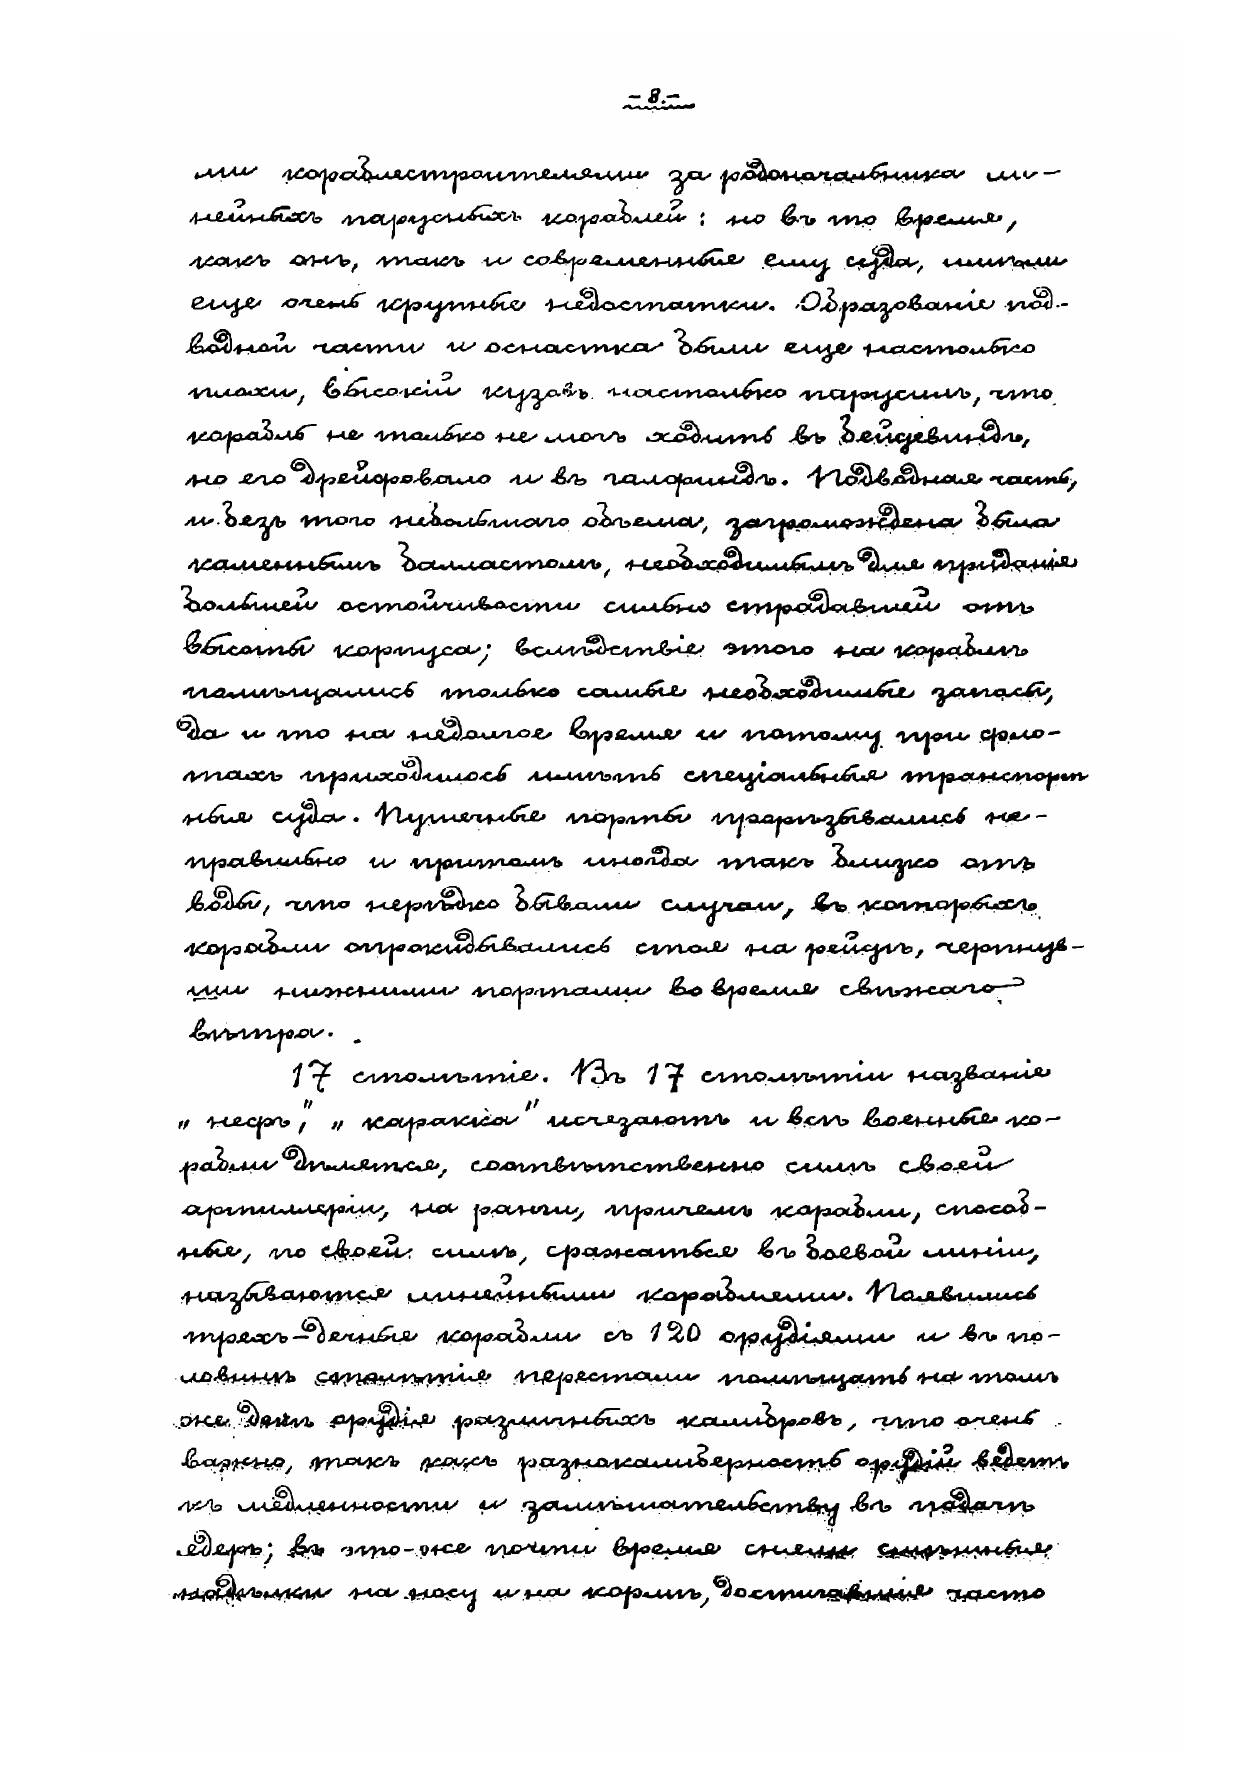 - 8.-
ми кораблестроителями за родоначальника ли-
нейныхъ парусныхъ кораблей: но въ то время,
какъ онъ, такъ и современные ему суда, имѣли
еще очень крупные недостатки. Образованіе под-
водной части и оснастка были еще настолько
плохи, высокій кузовъ настолько парусилъ, что
корабль не только не могъ ходить въ бейдевиндъ,
но его дрейфовало и въ галфиндъ. Подводная часть,
и безъ того небольшаго объема, загромождена была
каменнымъ балластомъ, необходимымъ для приданія
большей остойчивости сильно страдавшей отъ
высоты корпуса; вслѣдствіе этого на корабль
помѣщались только самые необходимые запасы,
да и то на недолгое время и потому при фло-
тахъ приходилось имѣть спеціальные транспорт
ные суда. Пушечные порты прорѣзывались не-
правильно и притомъ иногда такъ близко отъ
воды, что нерѣдко бывали случаи, въ которыхъ
корабли опрокидывались стоя на рейдѣ, черпнув-
ши нижними портами во время свѣжаго
вѣтра.
17 столѣтіе. Въ 17 столѣтіи названіе
„нефъ", „каракка" исчезаютъ и всѣ военные ко-
рабли дѣлятся, соотвѣтственно силѣ своей
артиллеріи, на ранги, причемъ корабли, способ-
ные, по своей силѣ, сражаться въ боевой линіи,
называются линейными кораблями. Появились
трехъ-дечные корабли съ 120 орудіями и въ по-
ловинѣ столѣтія перестали помѣщать на томъ
же декѣ орудія различныхъ калибровъ, что очень
важно, такъ какъ разнокалиберность орудій ведетъ
къ медленности и замѣшательству въ подачѣ
ядеръ; въ это-же почти время сняли
надѣлки на носу и на кормѣ, достигавшіе часто